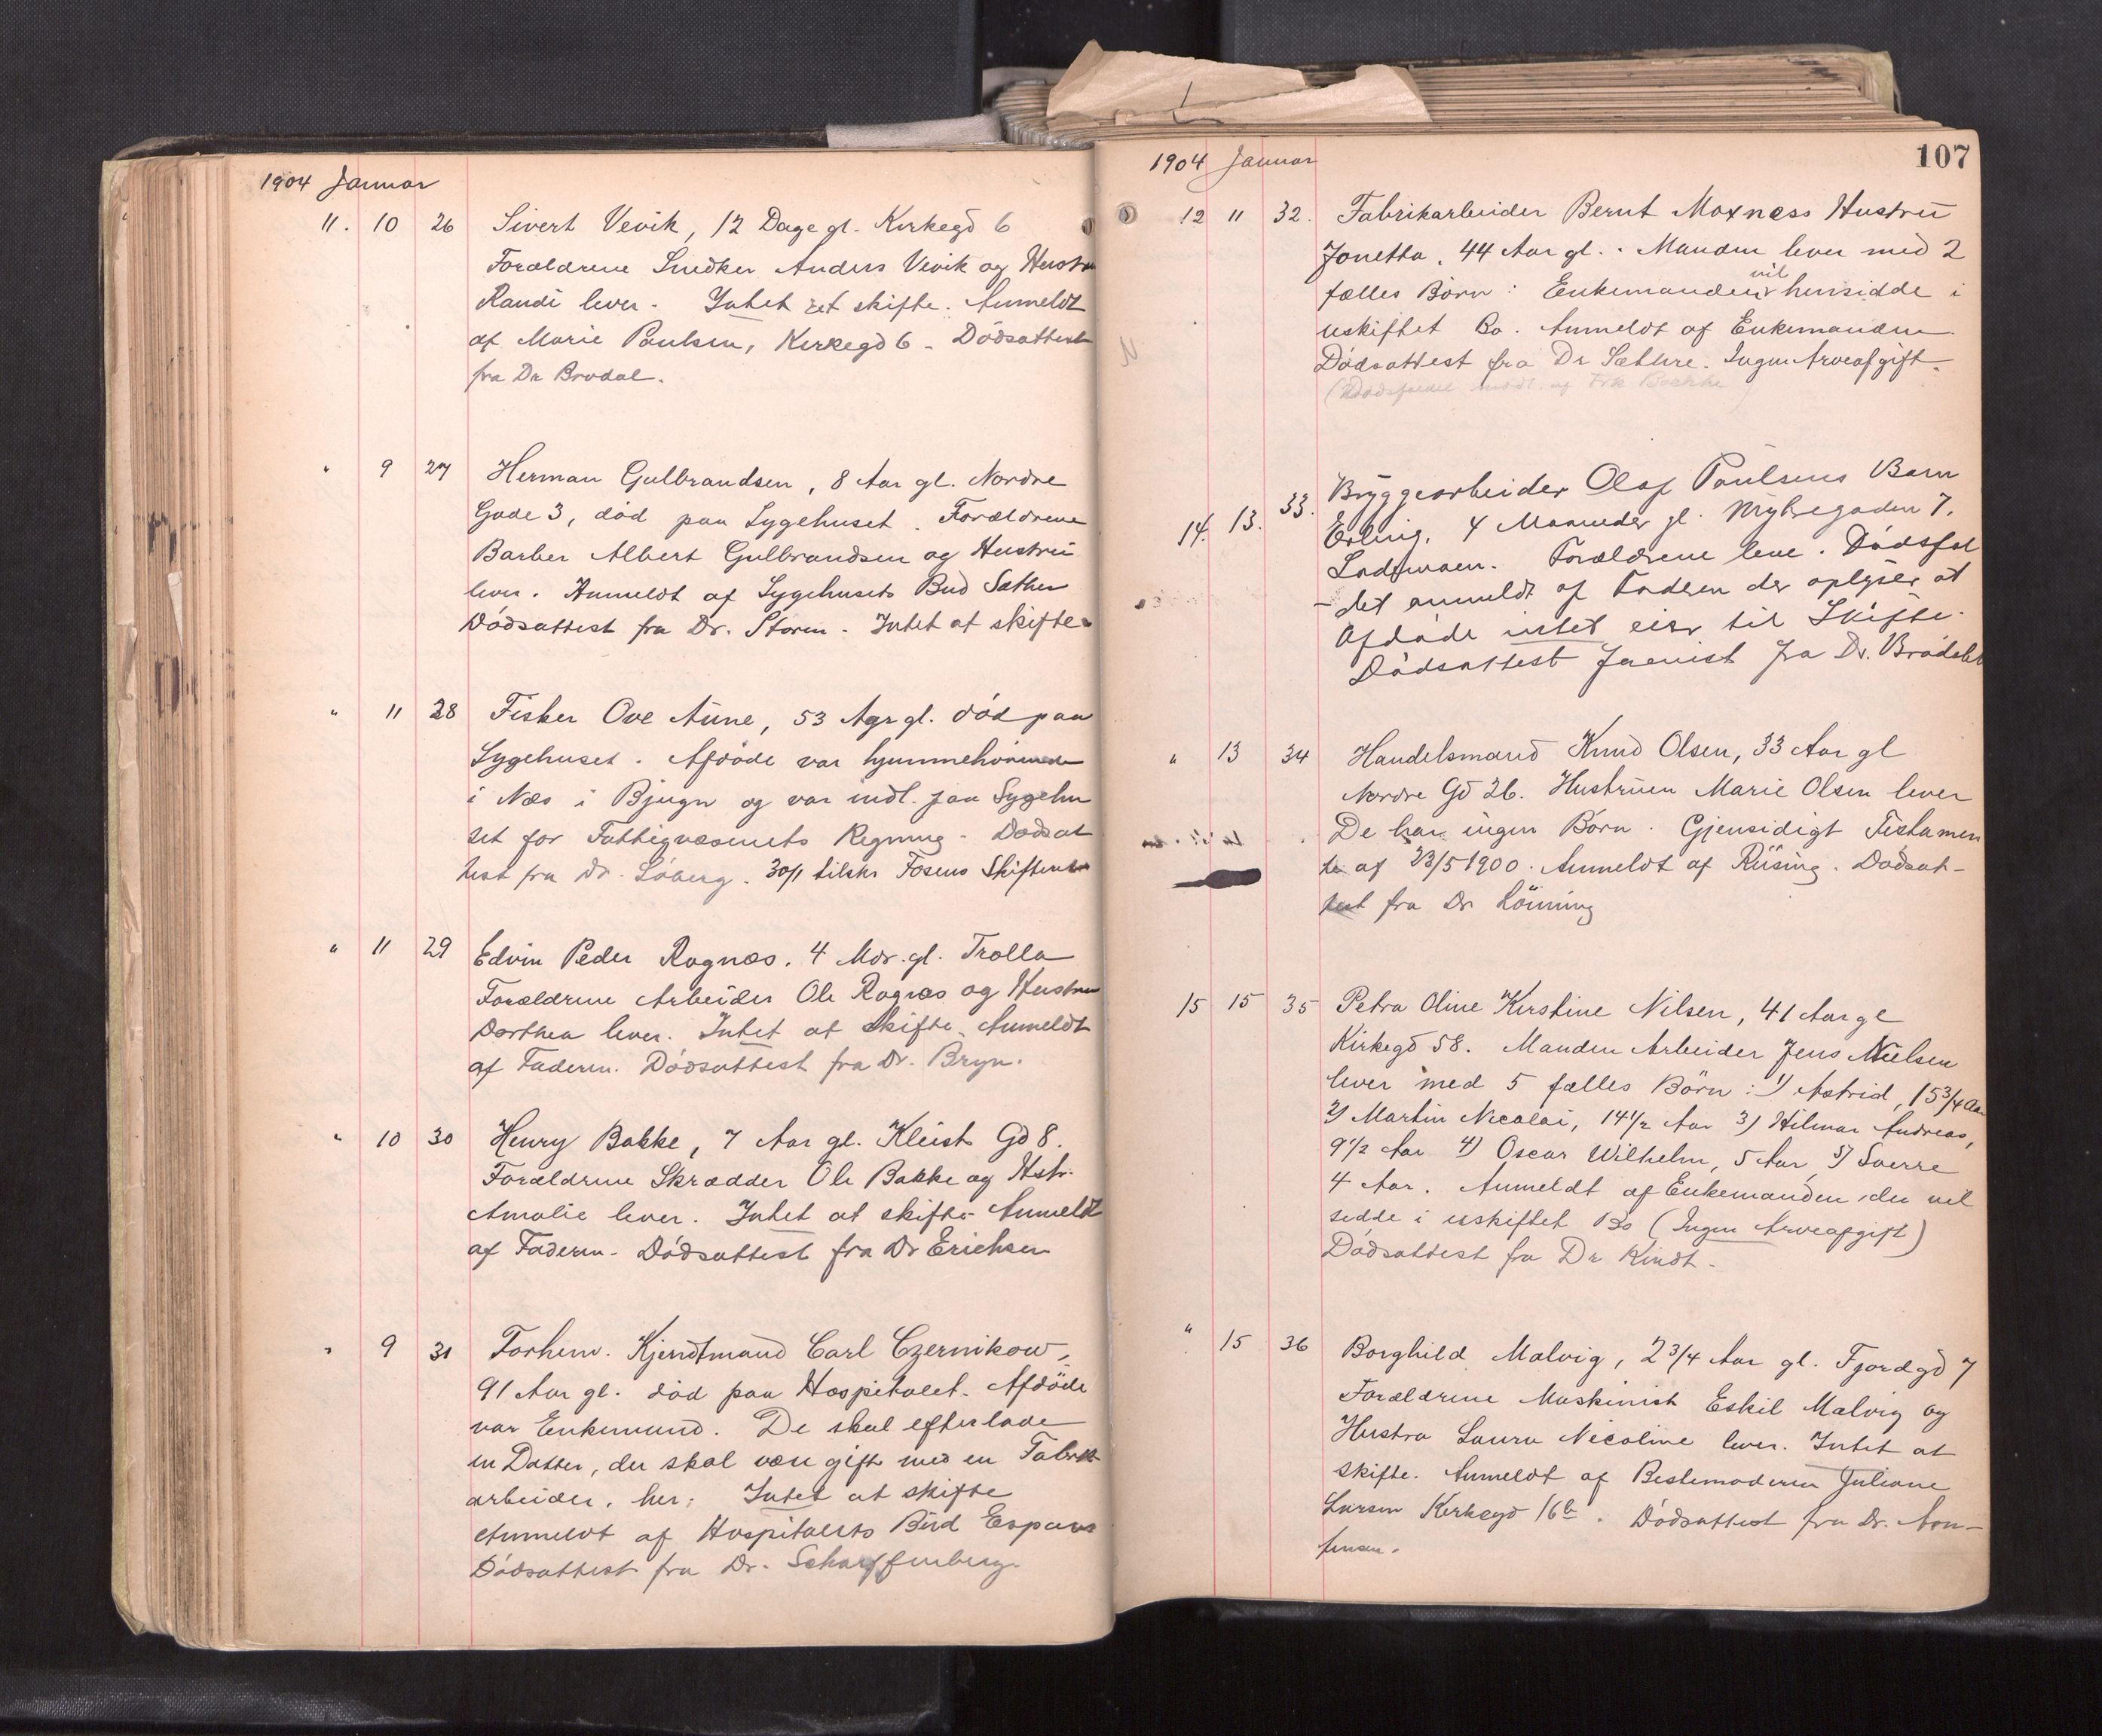 1904 Januar
11. 10 26 Sivert Vevik, 12 Dage gl. Kirkegd 6
Forældrene Snedker Anders Vevik og Hustru
Randi lever. Intet at skifte. Anmeldt
af Marie Paulsen, Kirkegd 6 - Dödsattest
fra Dr Brodal.
" 9 27 Herman Gulbrandsen, 8 Aar gl. Nordre
Gade 3, död paa Sygehuset. Forældrene
Barber Albert Gulbrandsen og Hustru
lever. Anmeldt af Sygehusets Bud Sæther
Dödsattest fra Dr. Storen - Intet at skifte.
" 11 28 Fisker Ove Aune, 53 Aar gl. död paa
Sygehuset. Afdöde var hjemmehörende
i Næs i Bjugn og var indl. paa Sygehu
set for Fattigvæsenets Regning - Dödsat
test fra Dr. Löberg. 30/1 tilskr Fosens Skifteret
" 11 29 Edvin Peder Rognæs. 4 Mdr. gl. Trolla
Forældrene Arbeider Ole Rognæs og Hustru
Dorthea lever. Intet at skifte. Anmeldt
af Faderen. Dödsattest fra Dr. Bryn.
" 10 30 Henry Bakke, 7 Aar gl. Kleist Gd 8.
Forældrene Skrædder Ole Bakke og Hstr.
Amalie lever. Intet at skifte - Anmeldt
af Faderen - Dödsattest fra Dr Erichsen
" 9 31 Forhenv. Kjendtmand Carl Czernikow,
91 Aar gl. död paa Hospitalet. Afdöde
var Enkemand. De skal efterlade
en Datter, der skal være gift med en Fabrik
arbeider, her; Intet at skifte
Anmeldt af Hospitalets Bud Espaas
Dödsattest fra Dr. Scharffenberg.
1904 Januar 107
12 11 32. Fabrikarbeider Bernt Moxness Hustru
Jonetta, 44 Aar gl. Manden lever med 2
fælles Börn: Enkemanden vil hensidde i
uskiftet Bo. Anmeldt af Enkemanden
Dödsattest fra Dr Sæthre. Ingen Arveafgift.
14. 13. 33. Bryggearbeider Olaf Paulsens Barn
Erling, 4 Maaneder gl. Mybregaden 7.
Lademoen. Forældrene leve. Dödsfal
- det anmeldt af Faderen der oplyser at
Afdöde intet eier til Skifte.
Dödsattest fra Dr. Brodal
" 13 34 Handelsmand Knud Olsen, 33 Aar gl
Nordre Gd 26. Hustruen Marie Olsen lever
De har ingen Börn. Gjensidigt Testamen
te af 23/5 1900. Anmeldt af Rüsing. Dödsat-
test fra Dr Lönning
15 15 35 Petra Oline Kirstine Nilsen, 41 Aar gl
Kirkegd 58. Manden Arbeider Jens Nielsen
lever med 5 fælles Börn: 1) Astrid, 15 3/4 Aar
2) Martin Nicolai, 14 1/2 Aar 3) Hilmar Andreas,
9 1/2 Aar 4) Oscar Wilhelm, 5 Aar, 5) Sverre
4 Aar. Anmeldt af Enkemanden der vil
sidde i uskiftet Bo (Ingen Arveafgift)
Dödsattest fra Dr Kindt.
" 15 36 Borghild Malvig, 2 3/4 Aar gl. Fjordgd 7
Forældrene Maskinist Eskil Malvig og
Hustru Laura Nicoline lever. Intet at
skifte. Anmeldt af Bestemoderen Juliane
Larsen Kirkegd 16b. Dödsattest fra Dr. Aon-